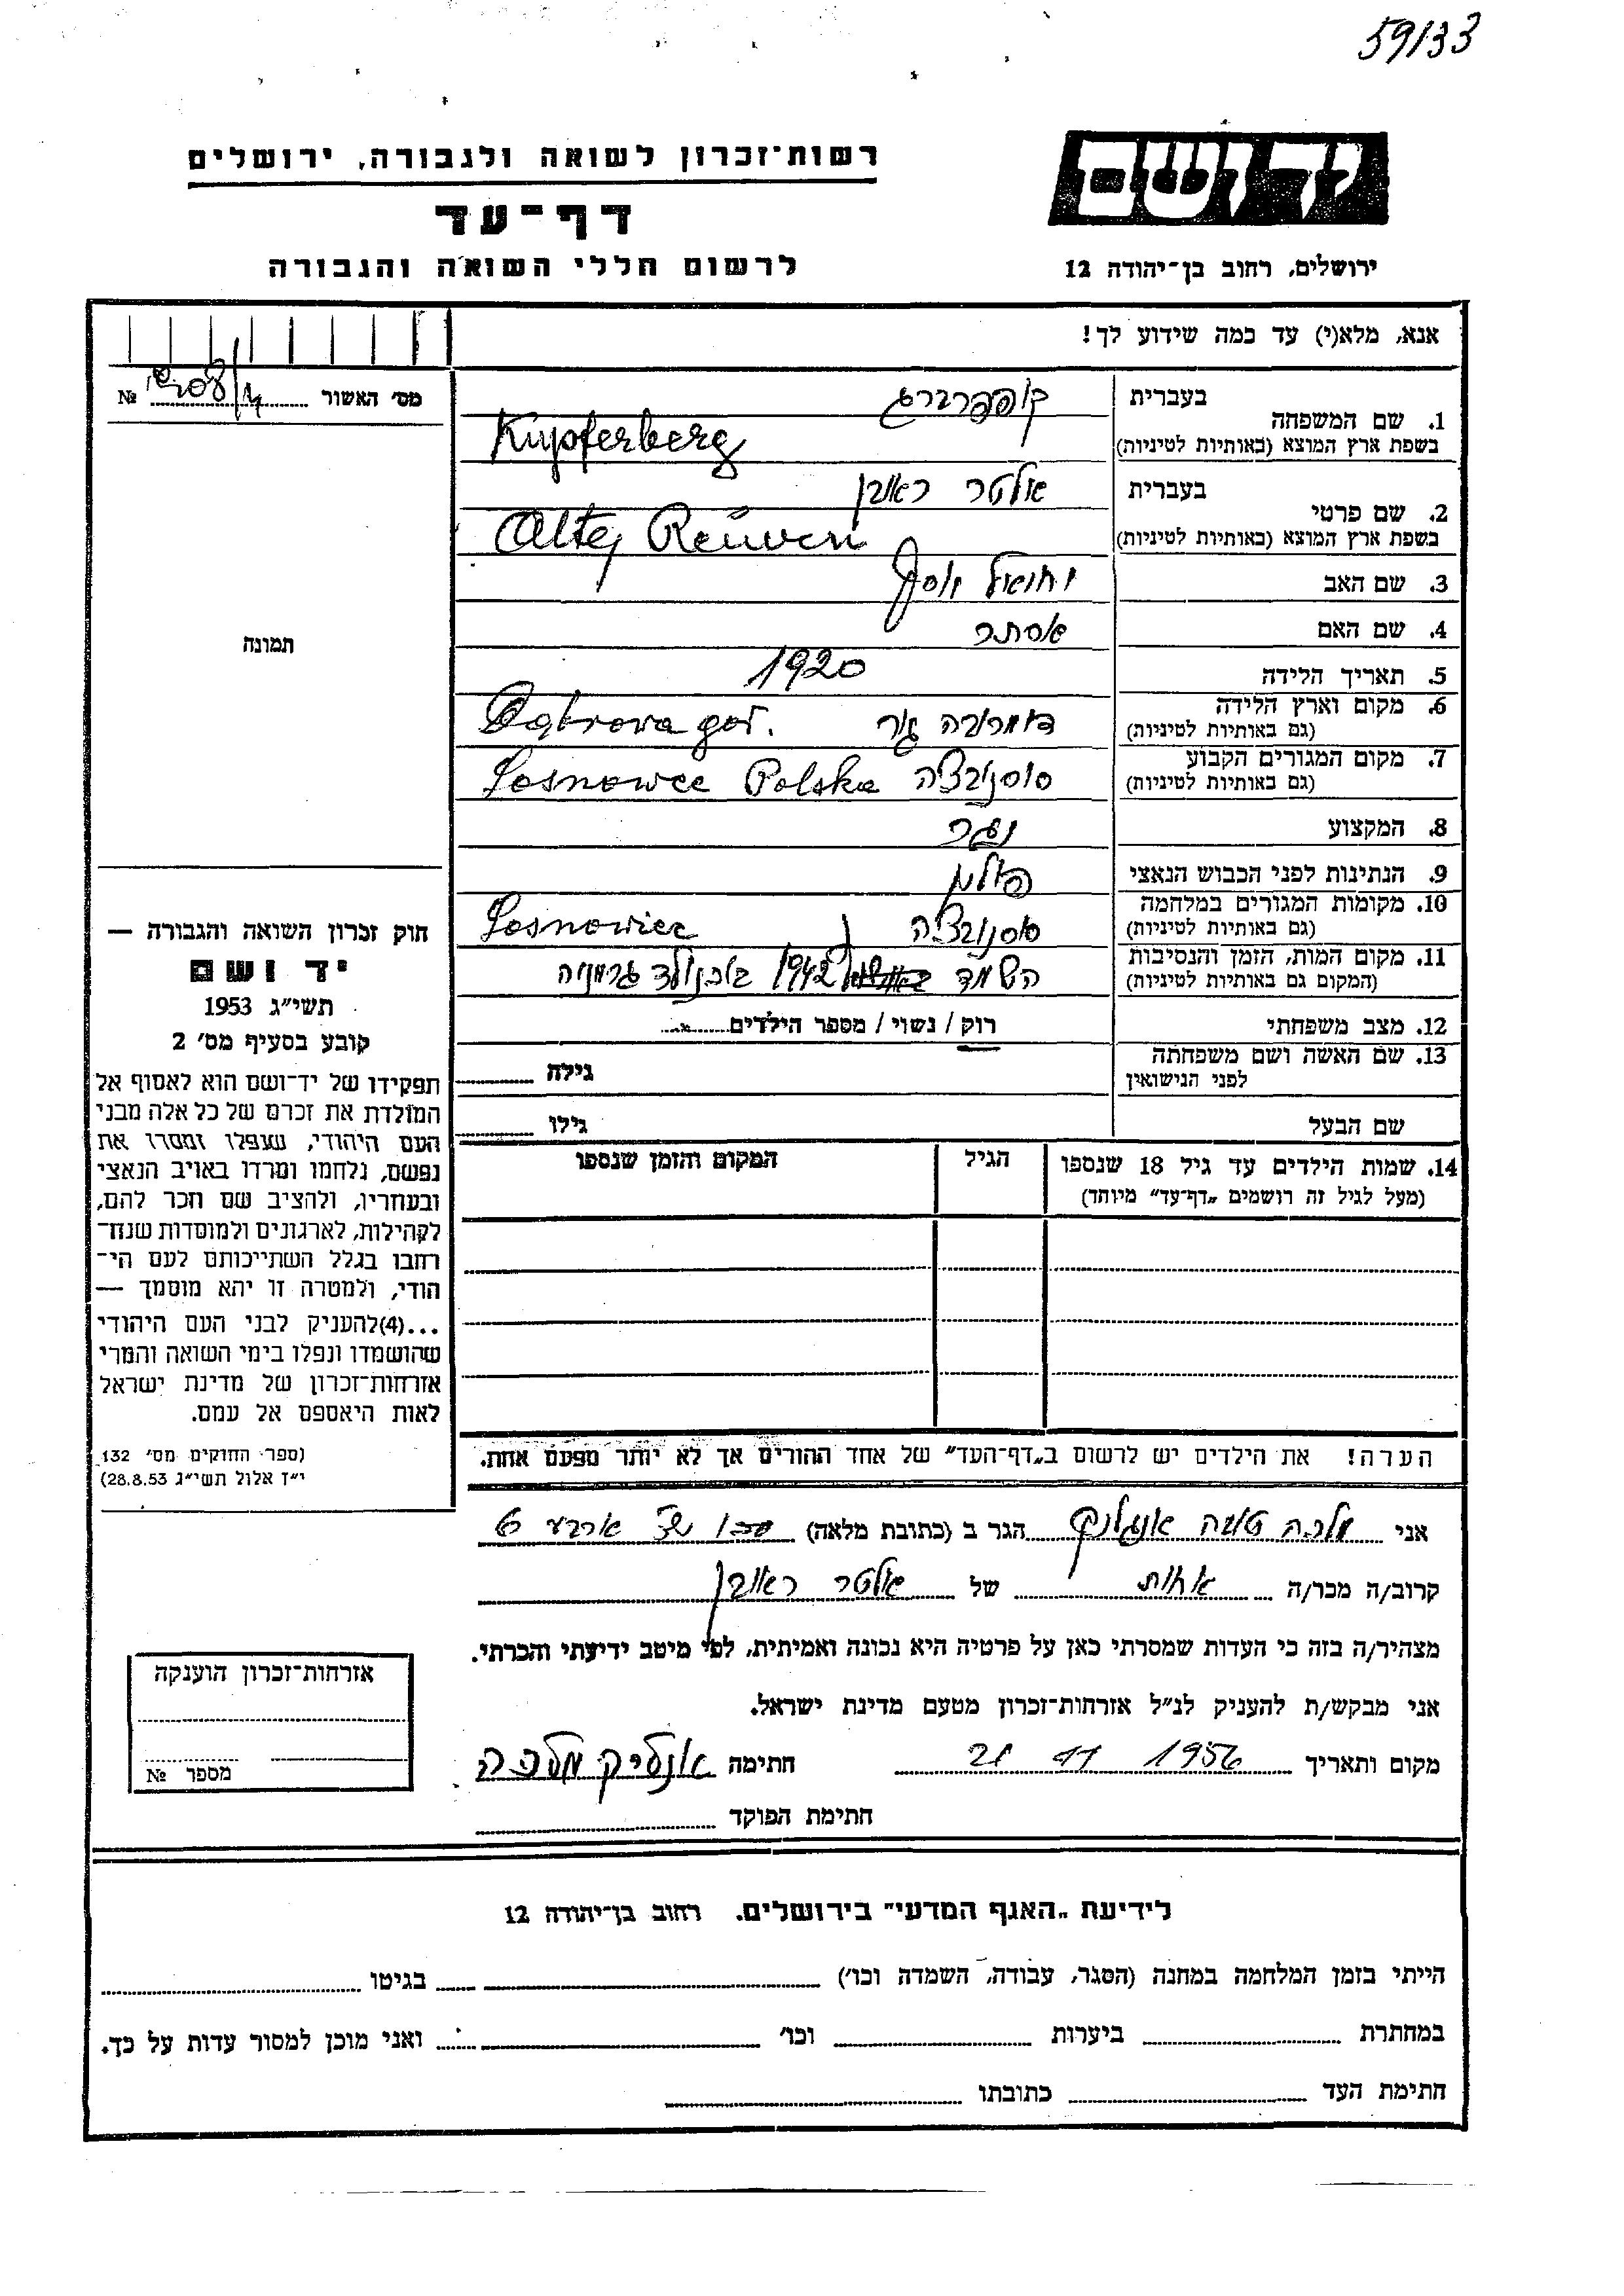 59/33
יד ושם
רשות־זכרון לשואה ולגבורה, ירושלים
דף־עד
לרשום חללי השואה והגבורה
ירושלים, רחוב בן־יהודה 12
אנא, מלא(י) עד כמה שידוע לך!
מס׳ האשור № 
1. שם המשפחה
בעברית קופפרברג
בשפת ארץ המוצא (באותיות לטיניות) Kupferberg
2. שם פרטי
בעברית אלטר ראובן
בשפת ארץ המוצא (באותיות לטיניות) Alter Reuven
3. שם האב יחזיאל יוסף
4. שם האם אסתר
5. תאריך הלידה 1920
6. מקום וארץ הלידה
(גם באותיות לטיניות) דומברובה גור Dąbrova gor.
7. מקום המגורים הקבוע
(גם באותיות לטיניות) סוסנובצה Sosnowce Polska
8. המקצוע נגר
9. הנתינות לפני הכבוש הנאצי פולין
10. מקומות המגורים במלחמה
(גם באותיות לטיניות) סוסנובצה Sosnowiec
11. מקום המות, הזמן והנסיבות
(המקום גם באותיות לטיניות) השמד 1942 בוכנולד גרמניה
12. מצב משפחתי רוק / נשוי / מספר הילדים
13. שם האשה ושם משפחתה
לפני הנישואין גילה
שם הבעל גילו
14. שמות הילדים עד גיל 18 שנספו
(מעל לגיל זה רושמים „דף־עד״ מיוחד)
הגיל
המקום והזמן שנספו
הערה! את הילדים יש לרשום ב„דף־העד״ של אחד ההורים אך לא יותר מפעם אחת.
תמונה
חוק זכרון השואה והגבורה —
יד ושם
תשי״ג 1953
קובע בסעיף מס׳ 2
תפקידו של יד־ושם הוא לאסוף אל
המולדת את זכרם של כל אלה מבני
העם היהודי, שנפלו ומסרו את
נפשם, נלחמו ומרדו באויב הנאצי
ובעוזריו, ולהציב שם וזכר להם,
לקהילות, לארגונים ולמוסדות שנח־
רבו בגלל השתייכותם לעם הי־
הודי, ולמטרה זו יהא מוסמך —
...(4)להעניק לבני העם היהודי
שהושמדו ונפלו בימי השואה והמרי
אזרחות־זכרון של מדינת ישראל
לאות היאספם אל עמם.
(ספר החוקים מס׳ 132,
י״ז אלול תשי״ג 28.8.53)
אני מלכה אנגליק הגר ב (כתובת מלאה)
קרוב/ה מכר/ה אחות של אלטר ראובן
מצהיר/ה בזה כי העדות שמסרתי כאן על פרטיה היא נכונה ואמיתית, לפי מיטב ידיעתי והכרתי.
אני מבקש/ת להעניק לנ״ל אזרחות־זכרון מטעם מדינת ישראל.
מקום ותאריך 21 11 1956 חתימה אנגליק מלכה
חתימת הפוקד
אזרחות־זכרון הוענקה
מספר №
לידיעת „האגף המדעי״ בירושלים. רחוב בן־יהודה 12
הייתי בזמן המלחמה במחנה (הסגר, עבודה, השמדה וכו׳) בגיטו
במחתרת ביערות וכו׳ ואני מוכן למסור עדות על כך.
חתימת העד כתובתו